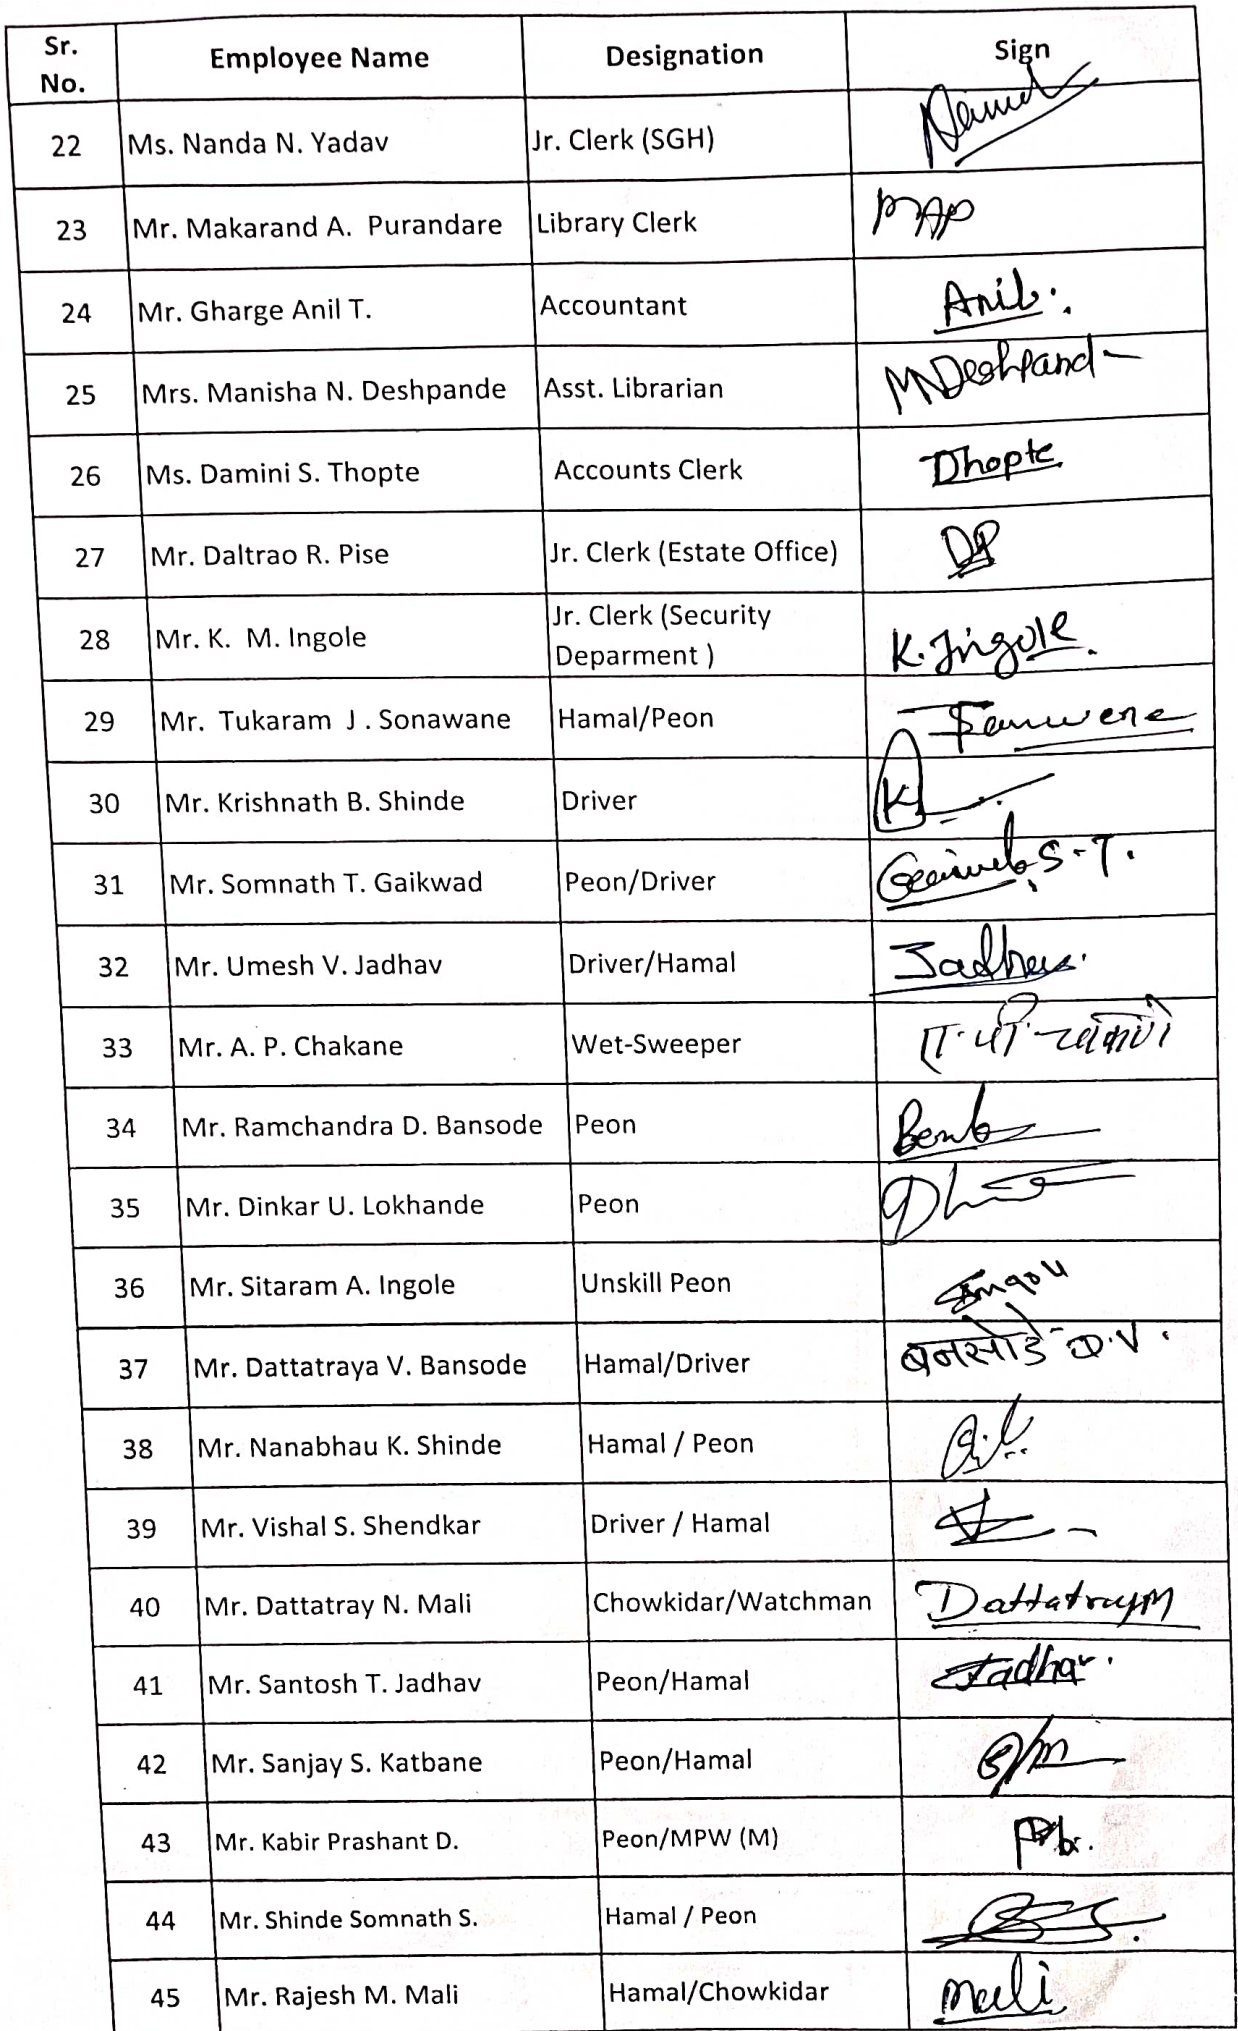 Sr. No. Employee Name Designation Sign
22 Ms. Nanda N. Yadav Jr. Clerk (SGH)
23 Mr. Makarand A. Purandare Library Clerk MAP
24 Mr. Gharge Anil T. Accountant Anil.
25 Mrs. Manisha N. Deshpande Asst. Librarian MDeshpand
26 Ms. Damini S. Thopte Accounts Clerk Dhopte
27 Mr. Daltrao R. Pise Jr. Clerk (Estate Office) DP
28 Mr. K. M. Ingole Jr. Clerk (Security
Deparment ) K. Ingole.
29 Mr. Tukaram J . Sonawane Hamal/Peon
30 Mr. Krishnath B. Shinde Driver K
31 Mr. Somnath T. Gaikwad Peon/Driver S.T.
32 Mr. Umesh V. Jadhav Driver/Hamal
33 Mr. A. P. Chakane Wet-Sweeper ए. पी. चाकणे
34 Mr. Ramchandra D. Bansode Peon
35 Mr. Dinkar U. Lokhande Peon
36 Mr. Sitaram A. Ingole Unskill Peon
37 Mr. Dattatraya V. Bansode Hamal/Driver बनसोडे D.V.
38 Mr. Nanabhau K. Shinde Hamal / Peon
39 Mr. Vishal S. Shendkar Driver / Hamal
40 Mr. Dattatray N. Mali Chowkidar/Watchman DattatrayM
41 Mr. Santosh T. Jadhav Peon/Hamal Jadhav.
42 Mr. Sanjay S. Katbane Peon/Hamal
43 Mr. Kabir Prashant D. Peon/MPW (M)
44 Mr. Shinde Somnath S. Hamal / Peon
45 Mr. Rajesh M. Mali Hamal/Chowkidar Mali